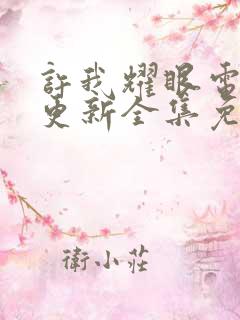 許我耀眼電
更新全集免
衛小莊